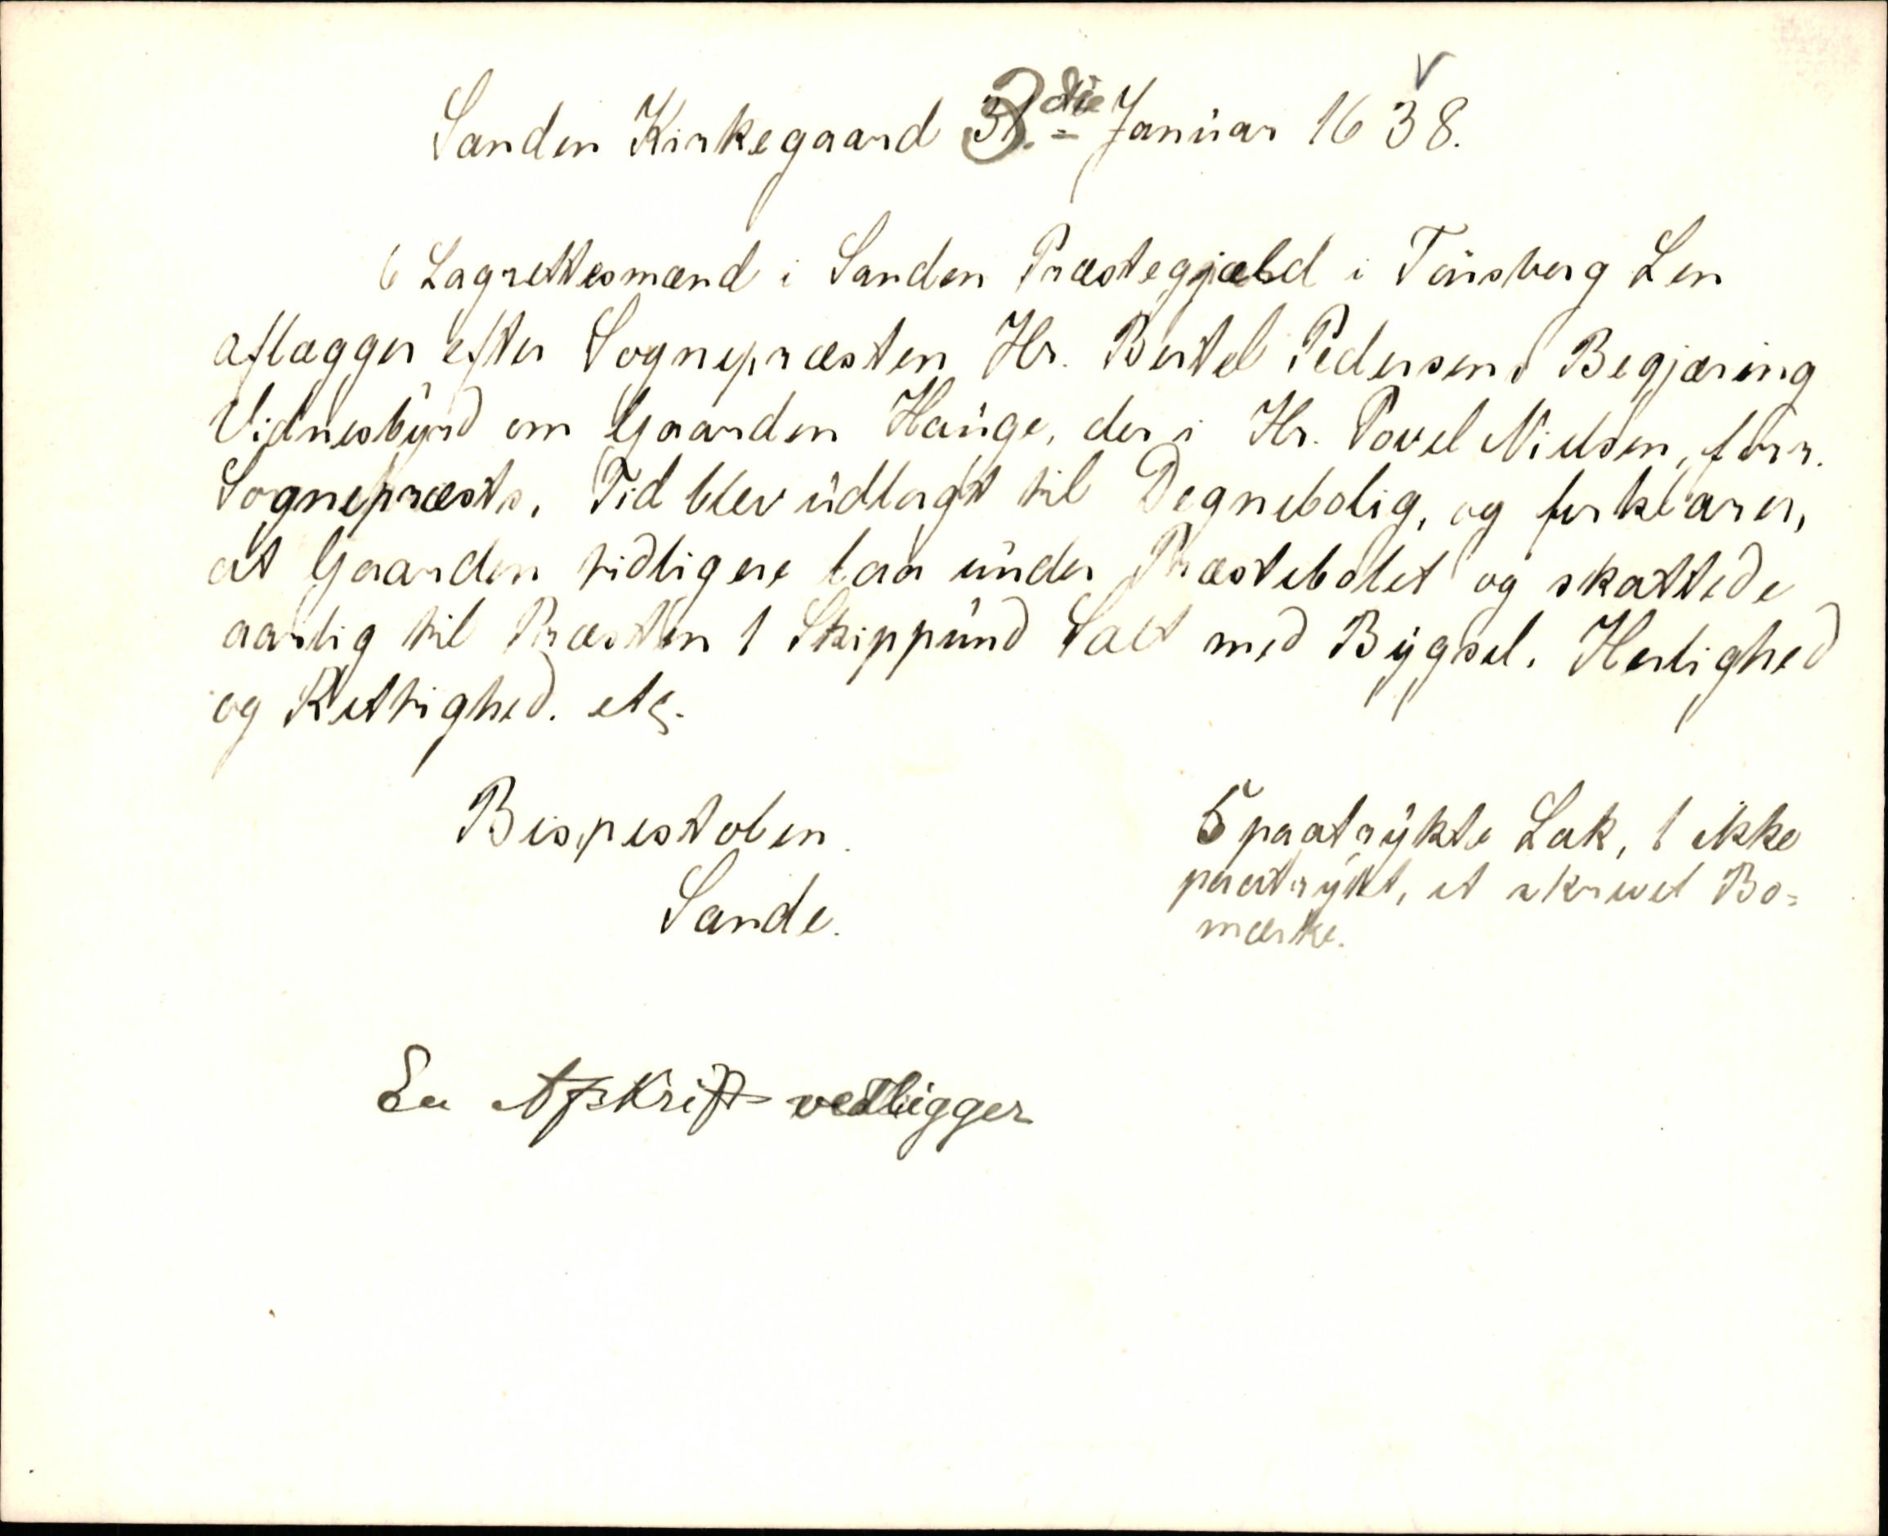 Sanden Kirkegaard 3die Januar 1638.
6 Lagrettesmænd i Sanden Præstegjæld i Tønsberg Len
aflægger efter Sognepræsten Hr. Bertel Pedersens Begjæring
Vidnesbyrd om Gaarden Hauge, der i Hr. Povel Nielsen, forr.
Sognepræsts, Tid blev udlagt til Degnebolig, og forklarer,
at Gaarden tidligere laa under Præstebolet og skattede
aarlig til Præsten 1 Skippund Salt med Bygsel, Herlighed
og Rettighed. etc.
Bispestolen.
Sande.
5 paatrykte Lak, 1 ikke
paatrykt, et skrevet Bo=
mærke.
En Afskrift vedligger